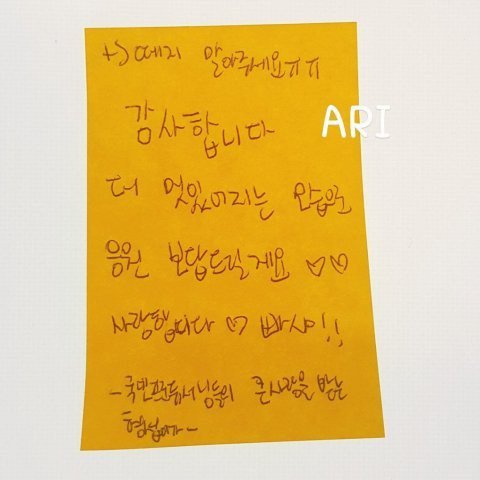 떼지 말아주세요ㅠㅠ
감사합니다
ARI
더 멋있어지는 모습으로
응원 보답드릴게요 ♡♡
사랑합니다 ♡ 빠샤!!
-국민프로듀서님들의 큰사랑을 받는
형섭이가-